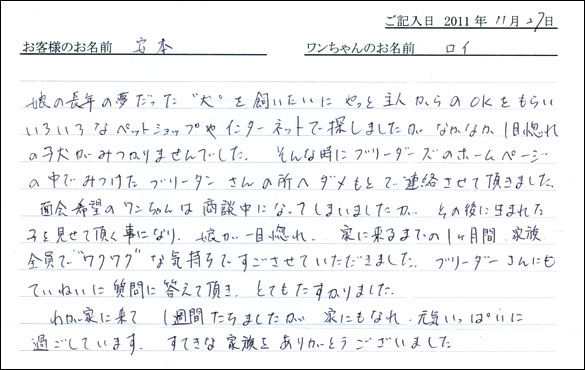 ご記入日 2011年11月27日
お客様のお名前 宮本 ワンちゃんのお名前 ロイ
娘の長年の夢だった"犬"を飼いたいに やっと主人からのOKをもらい
いろいろなペットショップやインターネットで探しましたが なかなか1目惚れ
の子犬がみつかりませんでした。 そんな時にブリーダーズのホームページ
の中でみつけた ブリーダーさんの所へダメもとで連絡させて頂きました。
面会希望のワンちゃんは商談中になってしまいましたが、その後に生まれた
子を見せて頂く事になり、娘が一目惚れ、家に来るまでの1ヶ月間、家族
全員で"ワクワク"な気持ちですごさせていただきました。ブリーダーさんにも
ていねいに質問に答えて頂き、とてもたすかりました。
わが家に来て 1週間たちましたが 家にもなれ、元気いっぱいに
過ごしています。 すてきな家族をありがとうございました